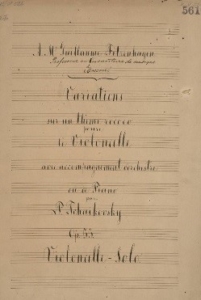 561
A Mr Guillaume Fitzenhagen
Professeur au Conservatoire de
Variations
sur un thème rococo
pour
le Violoncelle
avec accompagnement d'orchestre
ou de Piano
par
P. Tschaikovsky
Op. 33.
Violoncelle-Solo